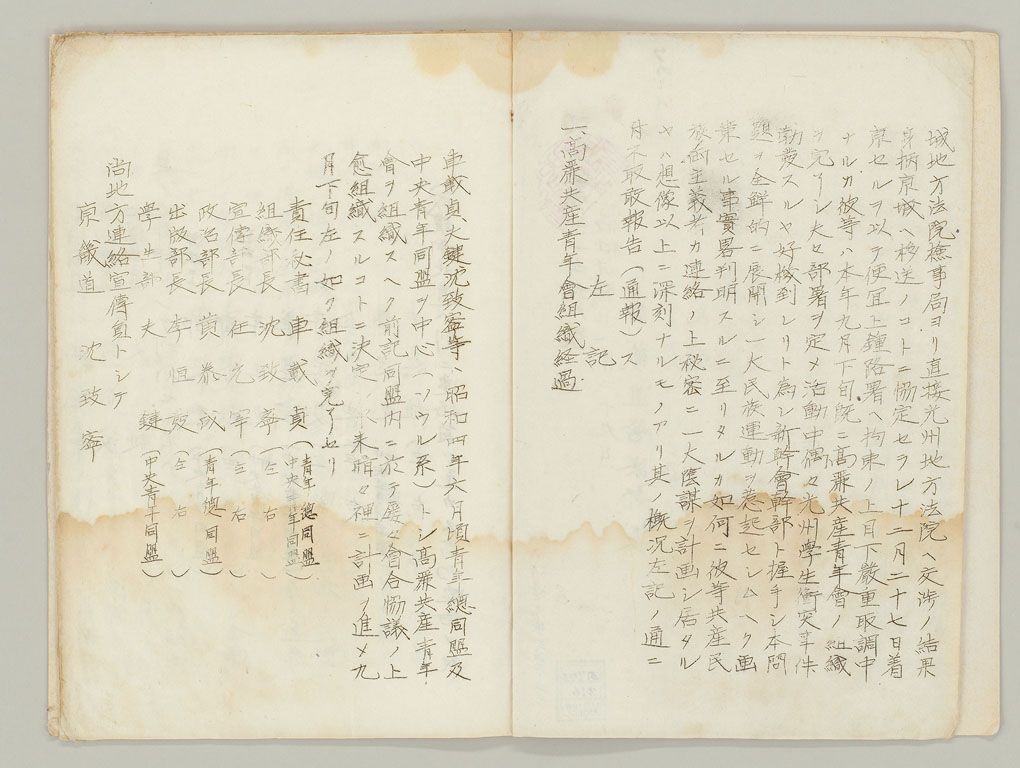 城地方法院検事局ヨリ直接光州地方法院ヘ交渉ノ結果
身柄京城ヘ移送ノコトニ協定セラレ十二月二十七日着
京セルヲ以テ便宜上鍾路署ヘ拘束ノ上目下嚴重取調中
ナルカ彼等ハ本年九月下旬既ニ高麗共産青年會ノ組織
ヲ完了シ夫々部署ヲ定メ活動中偶々光州學生衝突事件
勃發スルヤ好機到レリト為シ新幹會幹部ト握手シ本問
題ヲ全鮮的ニ展開シ一大民族運動ヲ惹起セシムヘク画
策セル事實畧判明スルニ至リタルカ如何ニ彼等共産民
族両主義者カ連絡ノ上秘密ニ一大陰謀ヲ計画シ居タル
ヤハ想像以上ニ深刻ナルモノアリ其ノ概況左記ノ通ニ
有不取敢報告(通報)ス
左記
一、高麗共産青年會組織経過
車載貞、大鍵沈致寧等ハ昭和四年六月頃青年總同盟及
中央青年同盟ヲ中心(ソウル系)トシ高麗共産青年
會ヲ組織スヘク前記同盟内ニ於テ屡々會合協議ノ上
愈組織スルコトニ決定シ爾来暗々裡ニ計画ヲ進メ九
月下旬左ノ如ク組織ヲ完了セリ
責任秘書 車載貞(青年總同盟 中央青年同盟)
組織部長 沈致寧(左右)
宣傳部長 任允宰(左右)
政治部長 黄泰成(青年總同盟)
出版部長 李恒發(左右)
學生部 大鍵(中央青年同盟)
尚地方連絡宣傳員トシテ
京畿道 沈致寧